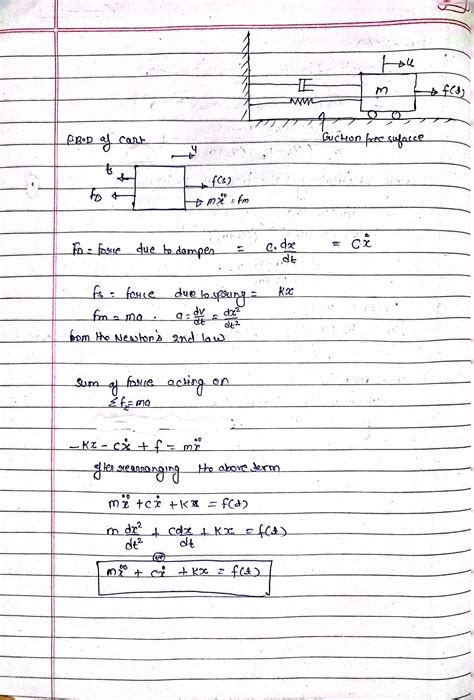 u
m
f(t)
friction free surface
F.B.D of cart
u
fs
f(t)
fD
mẍ = fm
FD = force due to damper = c. dx/dt = Cẋ
fs = force due to spring = Kx
fm = ma . a = dv/dt = dx²/dt²
from the Newton's 2nd law
sum of force acting on
Σfx=ma
-Kx - Cẋ + f = mẍ
after rearranging the above term
mẍ + cẋ + Kx = f(t)
m dx²/dt² + cdx/dt + Kx = f(t)
or
mẍ + cẋ + Kx = f(t)